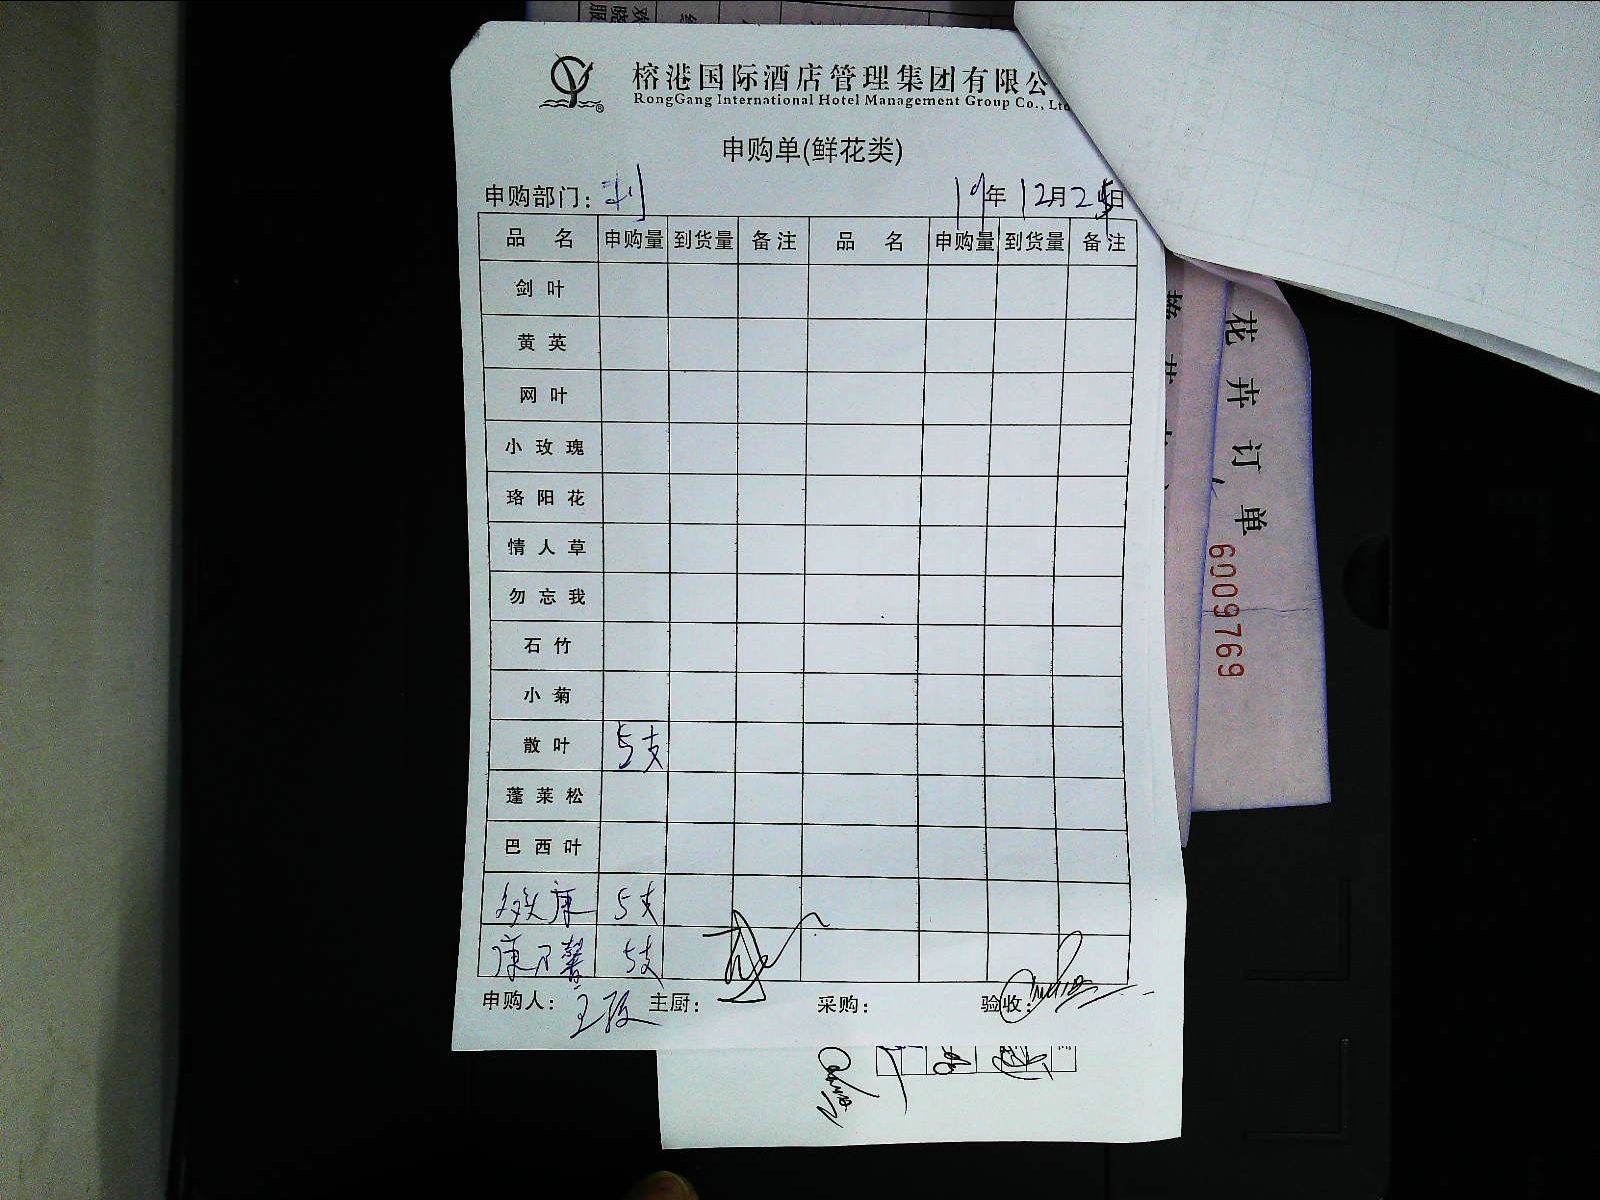 榕港国际酒店管理集团有限公
RongGang International Hotel Management Group Co., Ltd
申购单(鲜花类)
申购部门: 19年12月25日
品名 申购量 到货量 备注 品名 申购量 到货量 备注
剑叶
黄英
网叶
小玫瑰
珞阳花
情人草
勿忘我
石竹
小菊
散叶 5支
蓬莱松
巴西叶
康 5支
康乃馨 5支
申购人: 王 主厨: 采购: 验收:
花卉订单
6009769